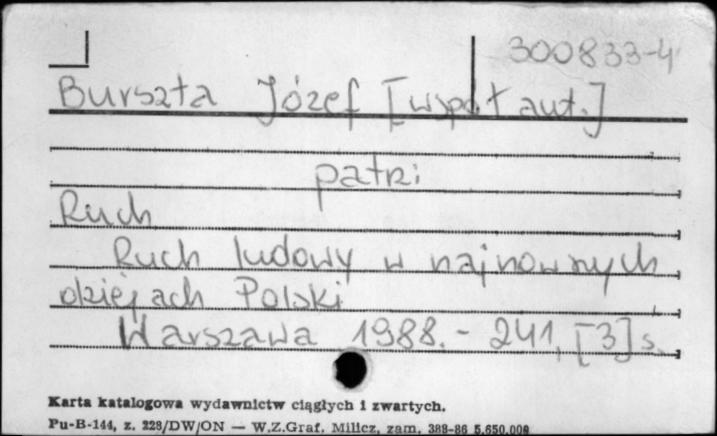 300833-4
Burszta Józef [współaut.]
patrz:
Ruch
Ruch ludowy w najnowszych
dziejach Polski
Warszawa 1988. - 241, [3] s.
Karta katalogowa wydawnictw ciągłych i zwartych.
Pu-B-144, z. 228/DW/ON — W.Z.Graf. Milicz, zam. 388-86 5.650.000